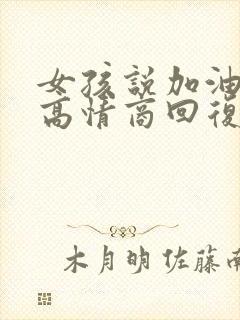 女孩說加油
高情商回復
木月明 佐藤南